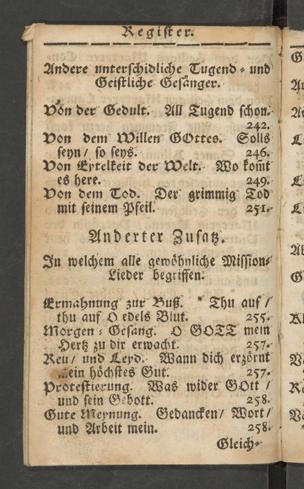 Register.
Andere unterschidliche Tugend- und
Geistliche Gesänger.
Von der Gedult. All Tugend schon.
242.
Von dem Willen GOttes. Solls
seyn/ so seys. 246.
Von Eytelkeit der Welt. Wo kom̃t
es here. 249.
Von dem Tod. Der grimmig Tod
mit seinem Pfeil. 251.
Anderter Zusatz.
In welchem alle gewöhnliche Missions-
Lieder begriffen.
Ermahnung zur Buß. * Thu auf/
thu auf O edels Blut. 255.
Morgen-Gesang. O GOTT mein
Hertz zu dir erwacht. 257.
Reu/ und Leyd. Wann dich erzörnt
mein höchstes Gut. 257.
Protestierung. Was wider GOtt/
und sein Gebott. 258.
Gute Meynung. Gedancken/ Wort/
und Arbeit mein. 258.
Gleich-